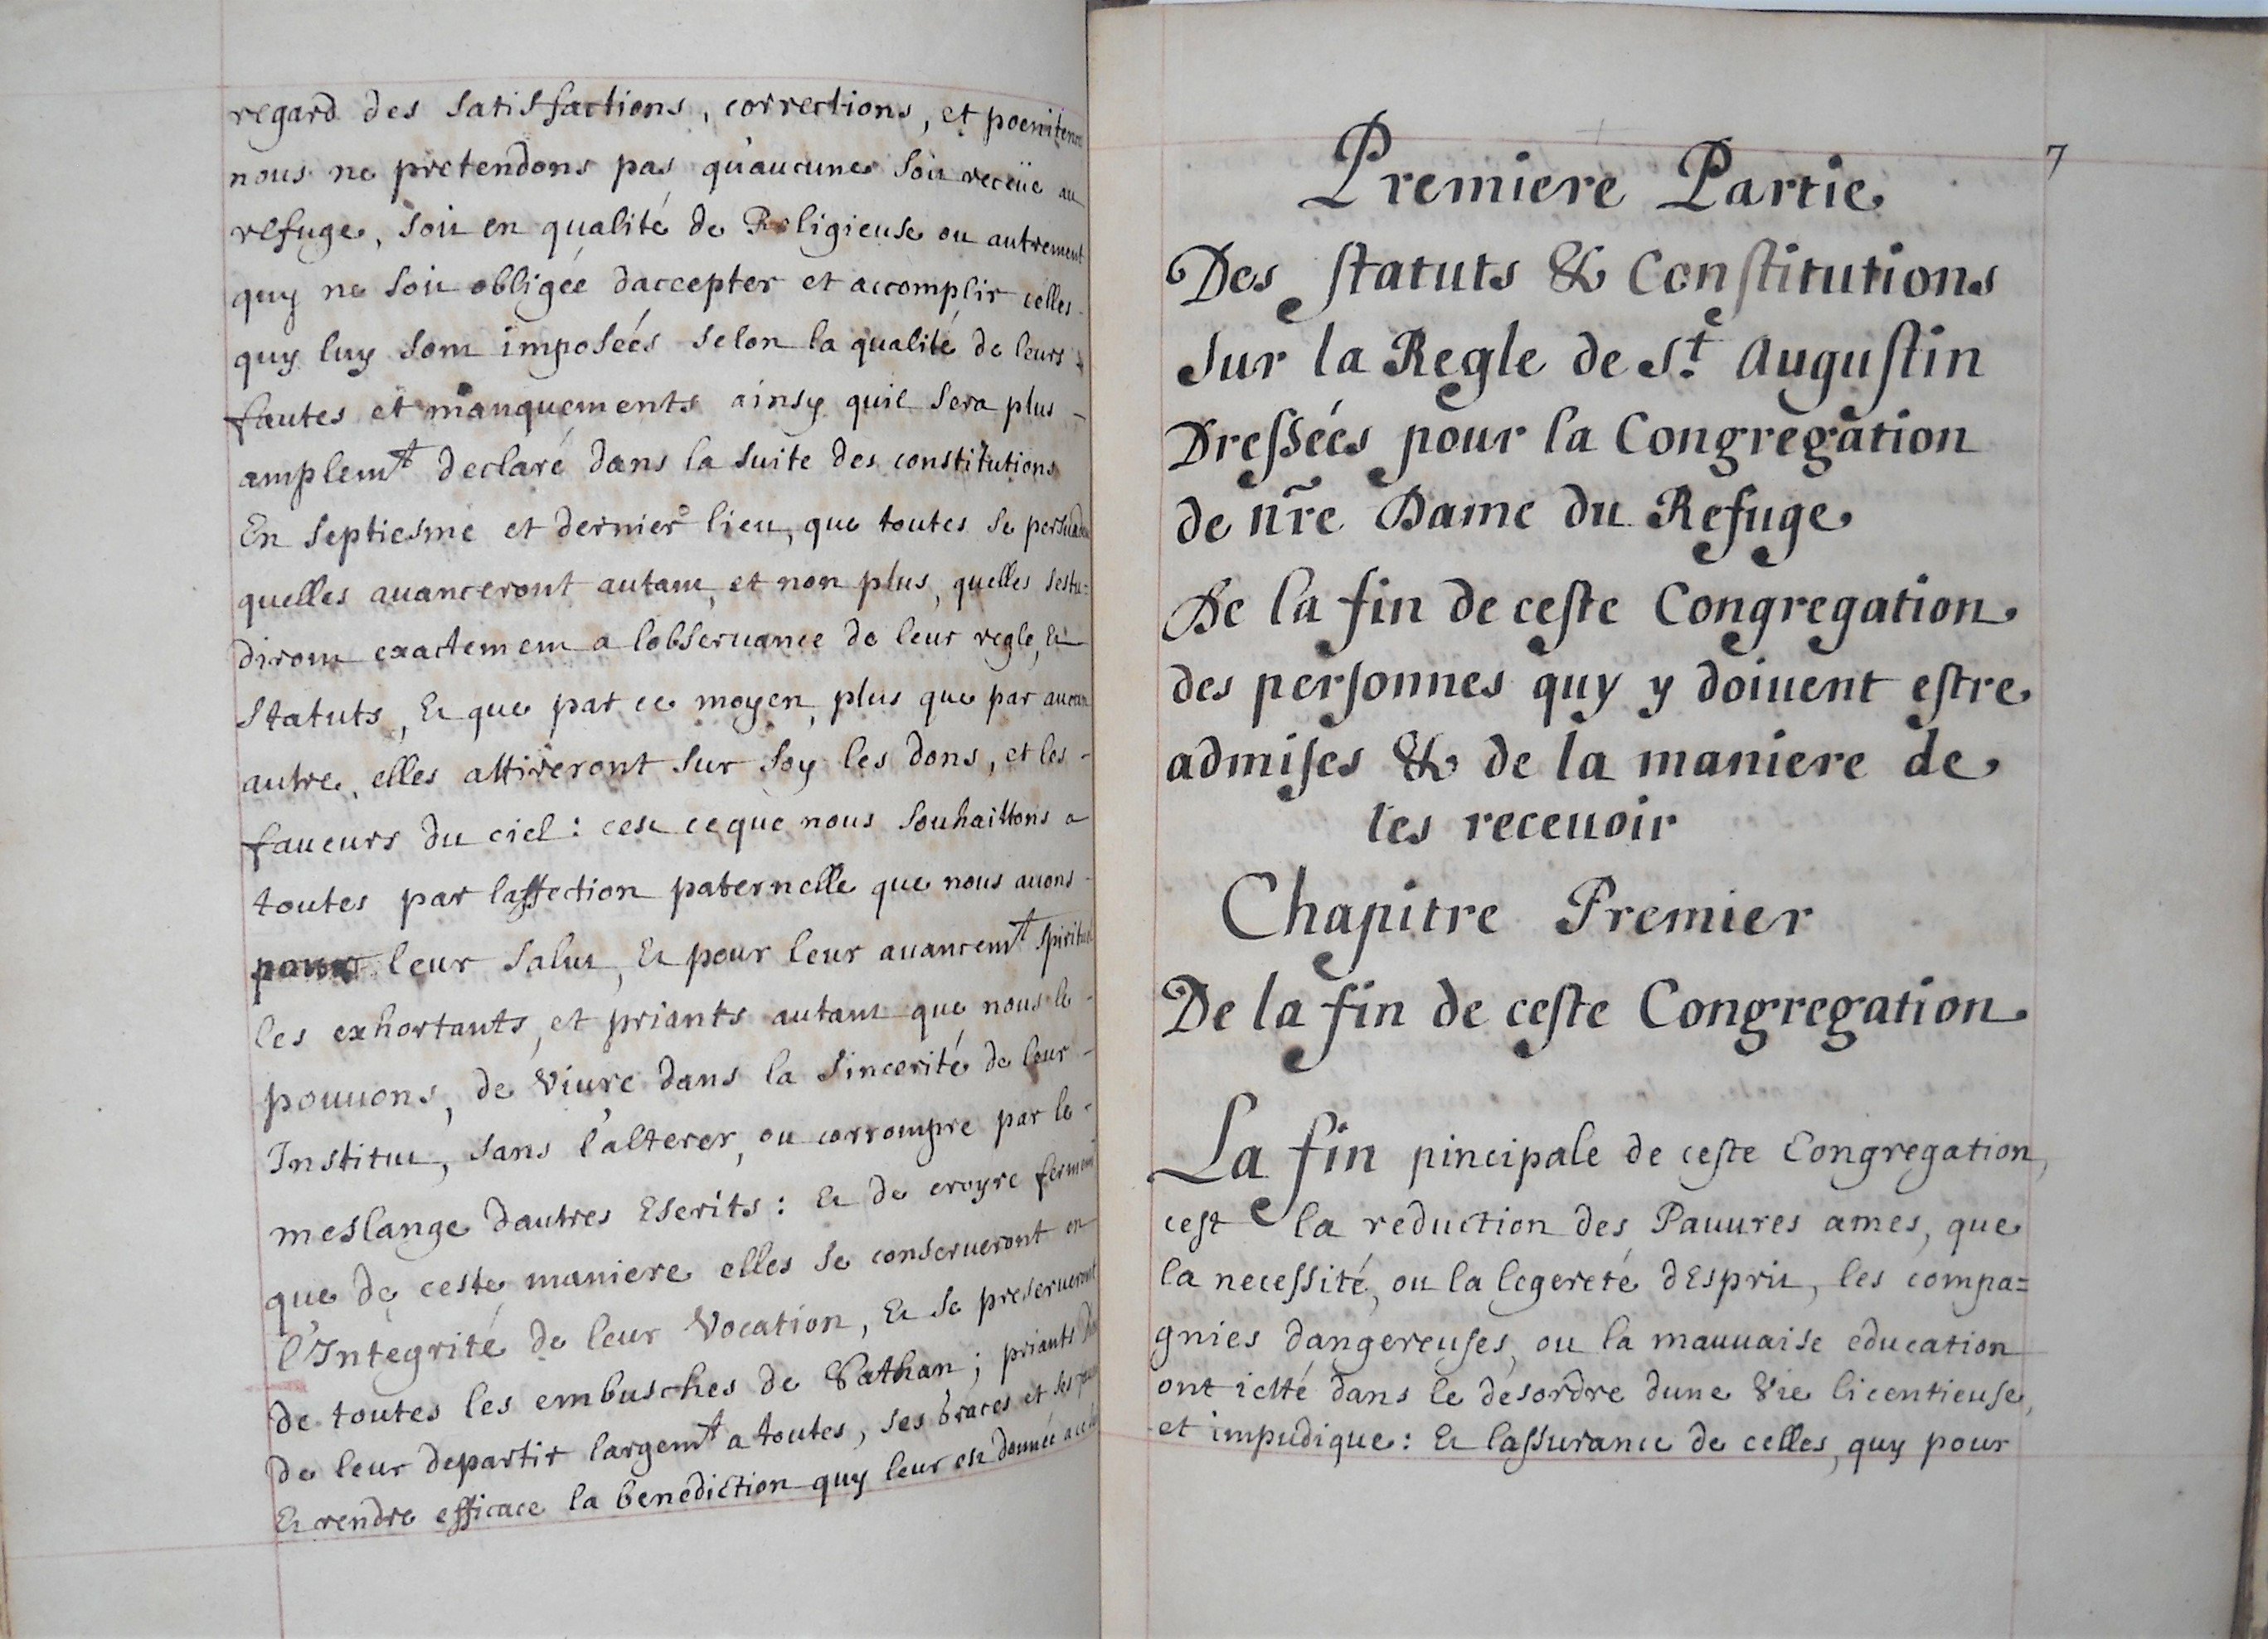 regard des satisfactions, corrections, et poenitence
nous ne pretendons pas qu'aucune soit receüe au
refuge, soit en qualité de Religieuse ou autrement
quy ne soit obligée daccepter et accomplir celles-
quy luy sont imposées selon la qualité de leurs
fautes et manquements ainsy quil sera plus-
amplemt declaré dans la suite des constitutions
En septiesme et dernier lieu, que toutes se
quelles auanceront autant, et non plus, quelles sestu=
diront exactement a lobseruance de leur regle, et
statuts, et que par ce moyen, plus que par aucun
autre, elles attireront sur soy les dons, et les-
faueurs du ciel: cest ce que nous souhaittons a
toutes par laffection paternelle que nous auons-
pour leur salut, et pour leur auancemt spirituel
les exhortants, et priants autant que nous le-
pouuons, de viure dans la sincerité de leur-
Institut, sans l'alterer, ou corrompre par le-
meslange dautres Escrits: et de croyre
que de ceste maniere elles se conserueront en
l'Integrité de leur Vocation, et se preserueront
de toutes les embusches de Sathan; priants
de leur departir largemt a toutes, ses Graces et ses
et rendre efficace la benediction quy leur est donnée
7
Premiere Partie
Des statuts & Constitutions
sur la Regle de St. Augustin
Dressées pour la Congregation
de nr̃e Dame du Refuge
De la fin de ceste Congregation
des personnes quy y doiuent estre
admises & de la maniere de
les receuoir
Chapitre Premier
De la fin de ceste Congregation
La fin pincipale de ceste Congregation,
cest la reduction des Pauures ames, que
la necessité, ou la legereté dEsprit, les compa=
gnies dangereuses, ou la mauuaise education
ont ietté dans le desordre dune Vie licentieuse,
et impudique: et lassurance de celles, quy pour